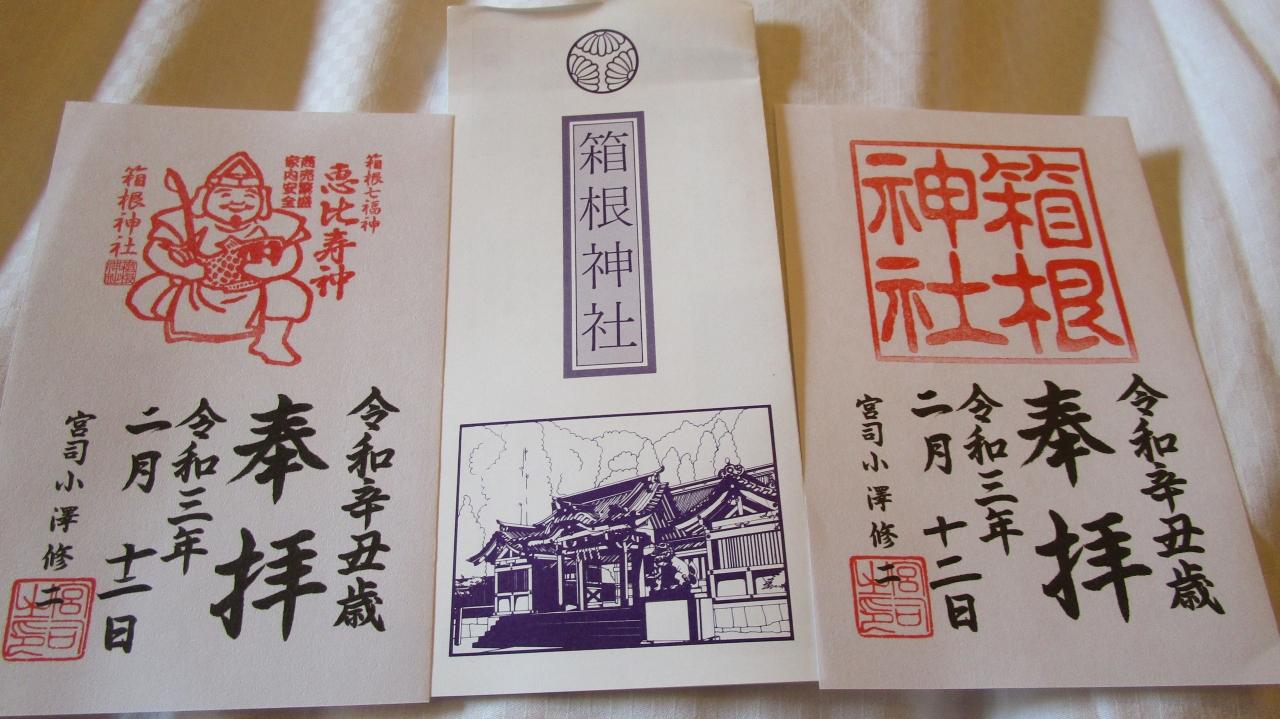 箱根七福神
恵比寿神
商売繁盛
家内安全
箱根神社
令和辛丑歳
奉拝
令和三年
二月十二日
宮司小澤修二
箱根神社
箱根
神社
令和辛丑歳
奉拝
令和三年
二月十二日
宮司小澤修二